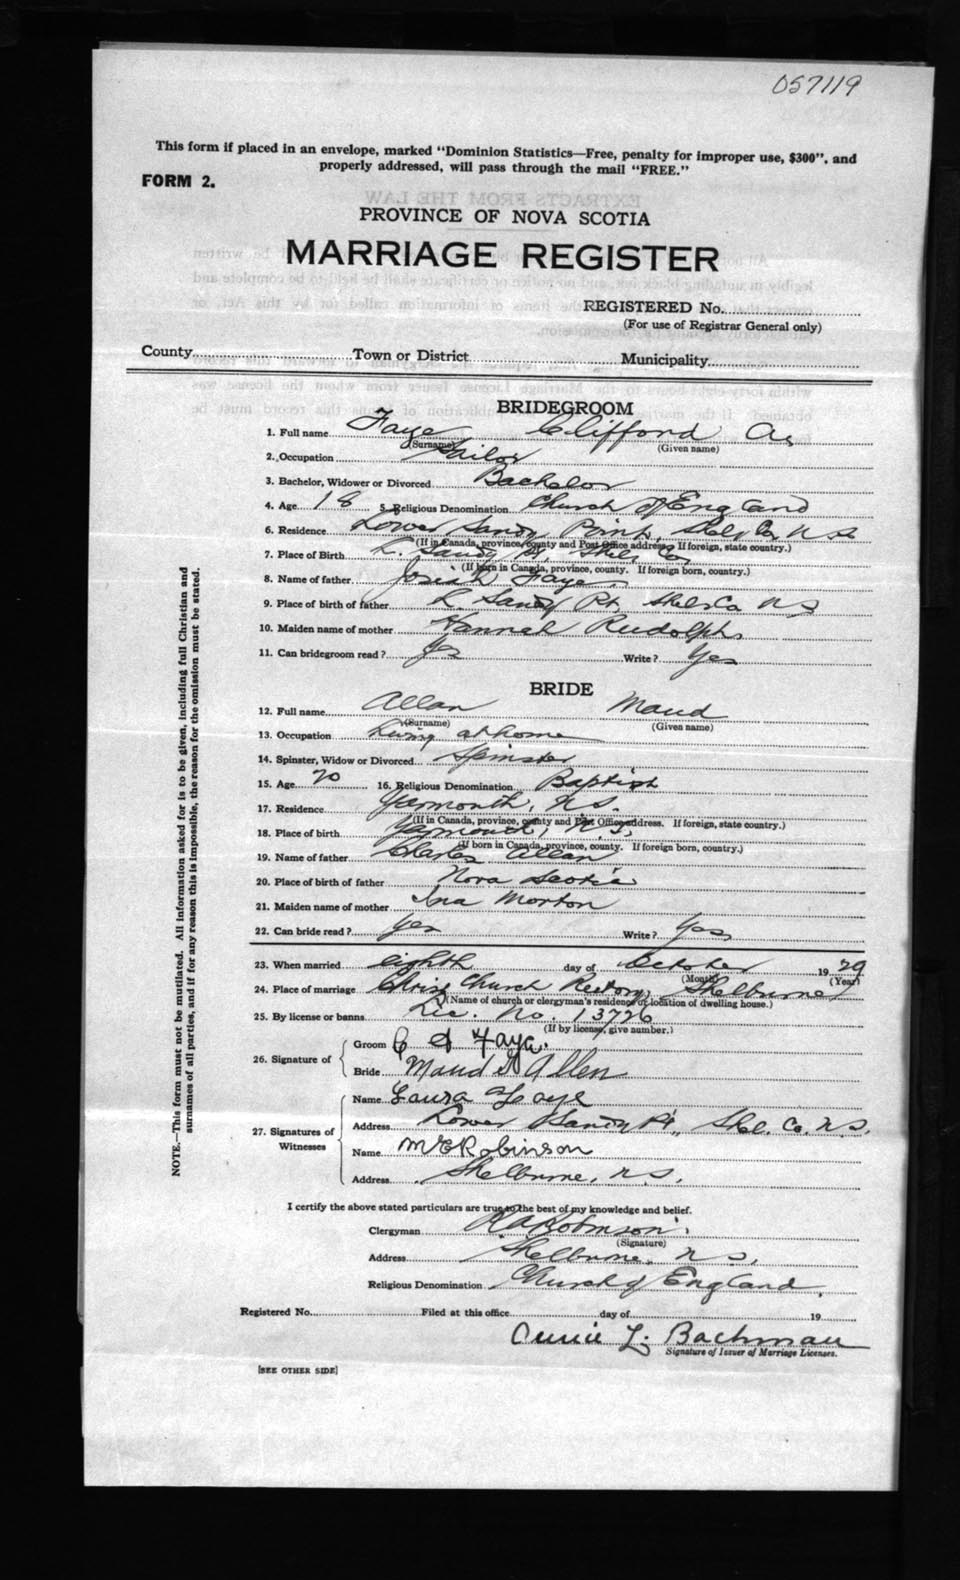 057119
This form if placed in an envelope, marked "Dominion Statistics—Free, penalty for improper use, $300", and
properly addressed, will pass through the mail "FREE."
FORM 2.
PROVINCE OF NOVA SCOTIA
MARRIAGE REGISTER
REGISTERED No.
(For use of Registrar General only)
County Town or District Municipality
BRIDEGROOM
1. Full name Faye Clifford A.
(Surname) (Given name)
2. Occupation Sailor
3. Bachelor, Widower or Divorced Bachelor
4. Age 18 5. Religious Denomination Church of England
6. Residence Lower Sandy Point, Shel. Co. N S
(If in Canada, province, county and Post Office address. If foreign, state country.)
7. Place of Birth L. Sandy Pt. Shel. Co.
(If born in Canada, province, county. If foreign born, country.)
8. Name of father Josiah Faye
9. Place of birth of father L. Sandy Pt. Shel Co N S
10. Maiden name of mother Hannah Rudolph
11. Can bridegroom read? Yes Write? Yes
BRIDE
12. Full name Allan Maud
(Surname) (Given name)
13. Occupation Living at home
14. Spinster, Widow or Divorced Spinster
15. Age 20 16. Religious Denomination Baptist
17. Residence Yarmouth, N.S.
(If in Canada, province, county and Post Office address. If foreign, state country.)
18. Place of birth Yarmouth, N.S.
(If born in Canada, province, county. If foreign born, country.)
19. Name of father Charles Allan
20. Place of birth of father Nova Scotia
21. Maiden name of mother Ina Morton
22. Can bride read? Yes Write? Yes
23. When married eighth day of October 1929
(Month) (Year)
24. Place of marriage Christ Church Rectory, Shelburne
(Name of church or clergyman's residence or location of dwelling house.)
25. By license or banns Lic. No. 13726
(If by license, give number.)
26. Signature of Groom C A Faye.
Bride Maud Allen
27. Signatures of Witnesses Name Laura Faye
Address Lower Sandy Pt., Shel. Co. N.S.
Name M E Robinson
Address Shelburne, N.S.
I certify the above stated particulars are true to the best of my knowledge and belief.
Clergyman Robinson
(Signature)
Address Shelburne, N.S.
Religious Denomination Church of England
Registered No. Filed at this office day of 19
Annie L. Bachman
Signature of Issuer of Marriage Licenses.
[SEE OTHER SIDE]
NOTE.—This form must not be mutilated. All information asked for is to be given, including full Christian and
surnames of all parties, and if for any reason this is impossible, the reason for the omission must be stated.